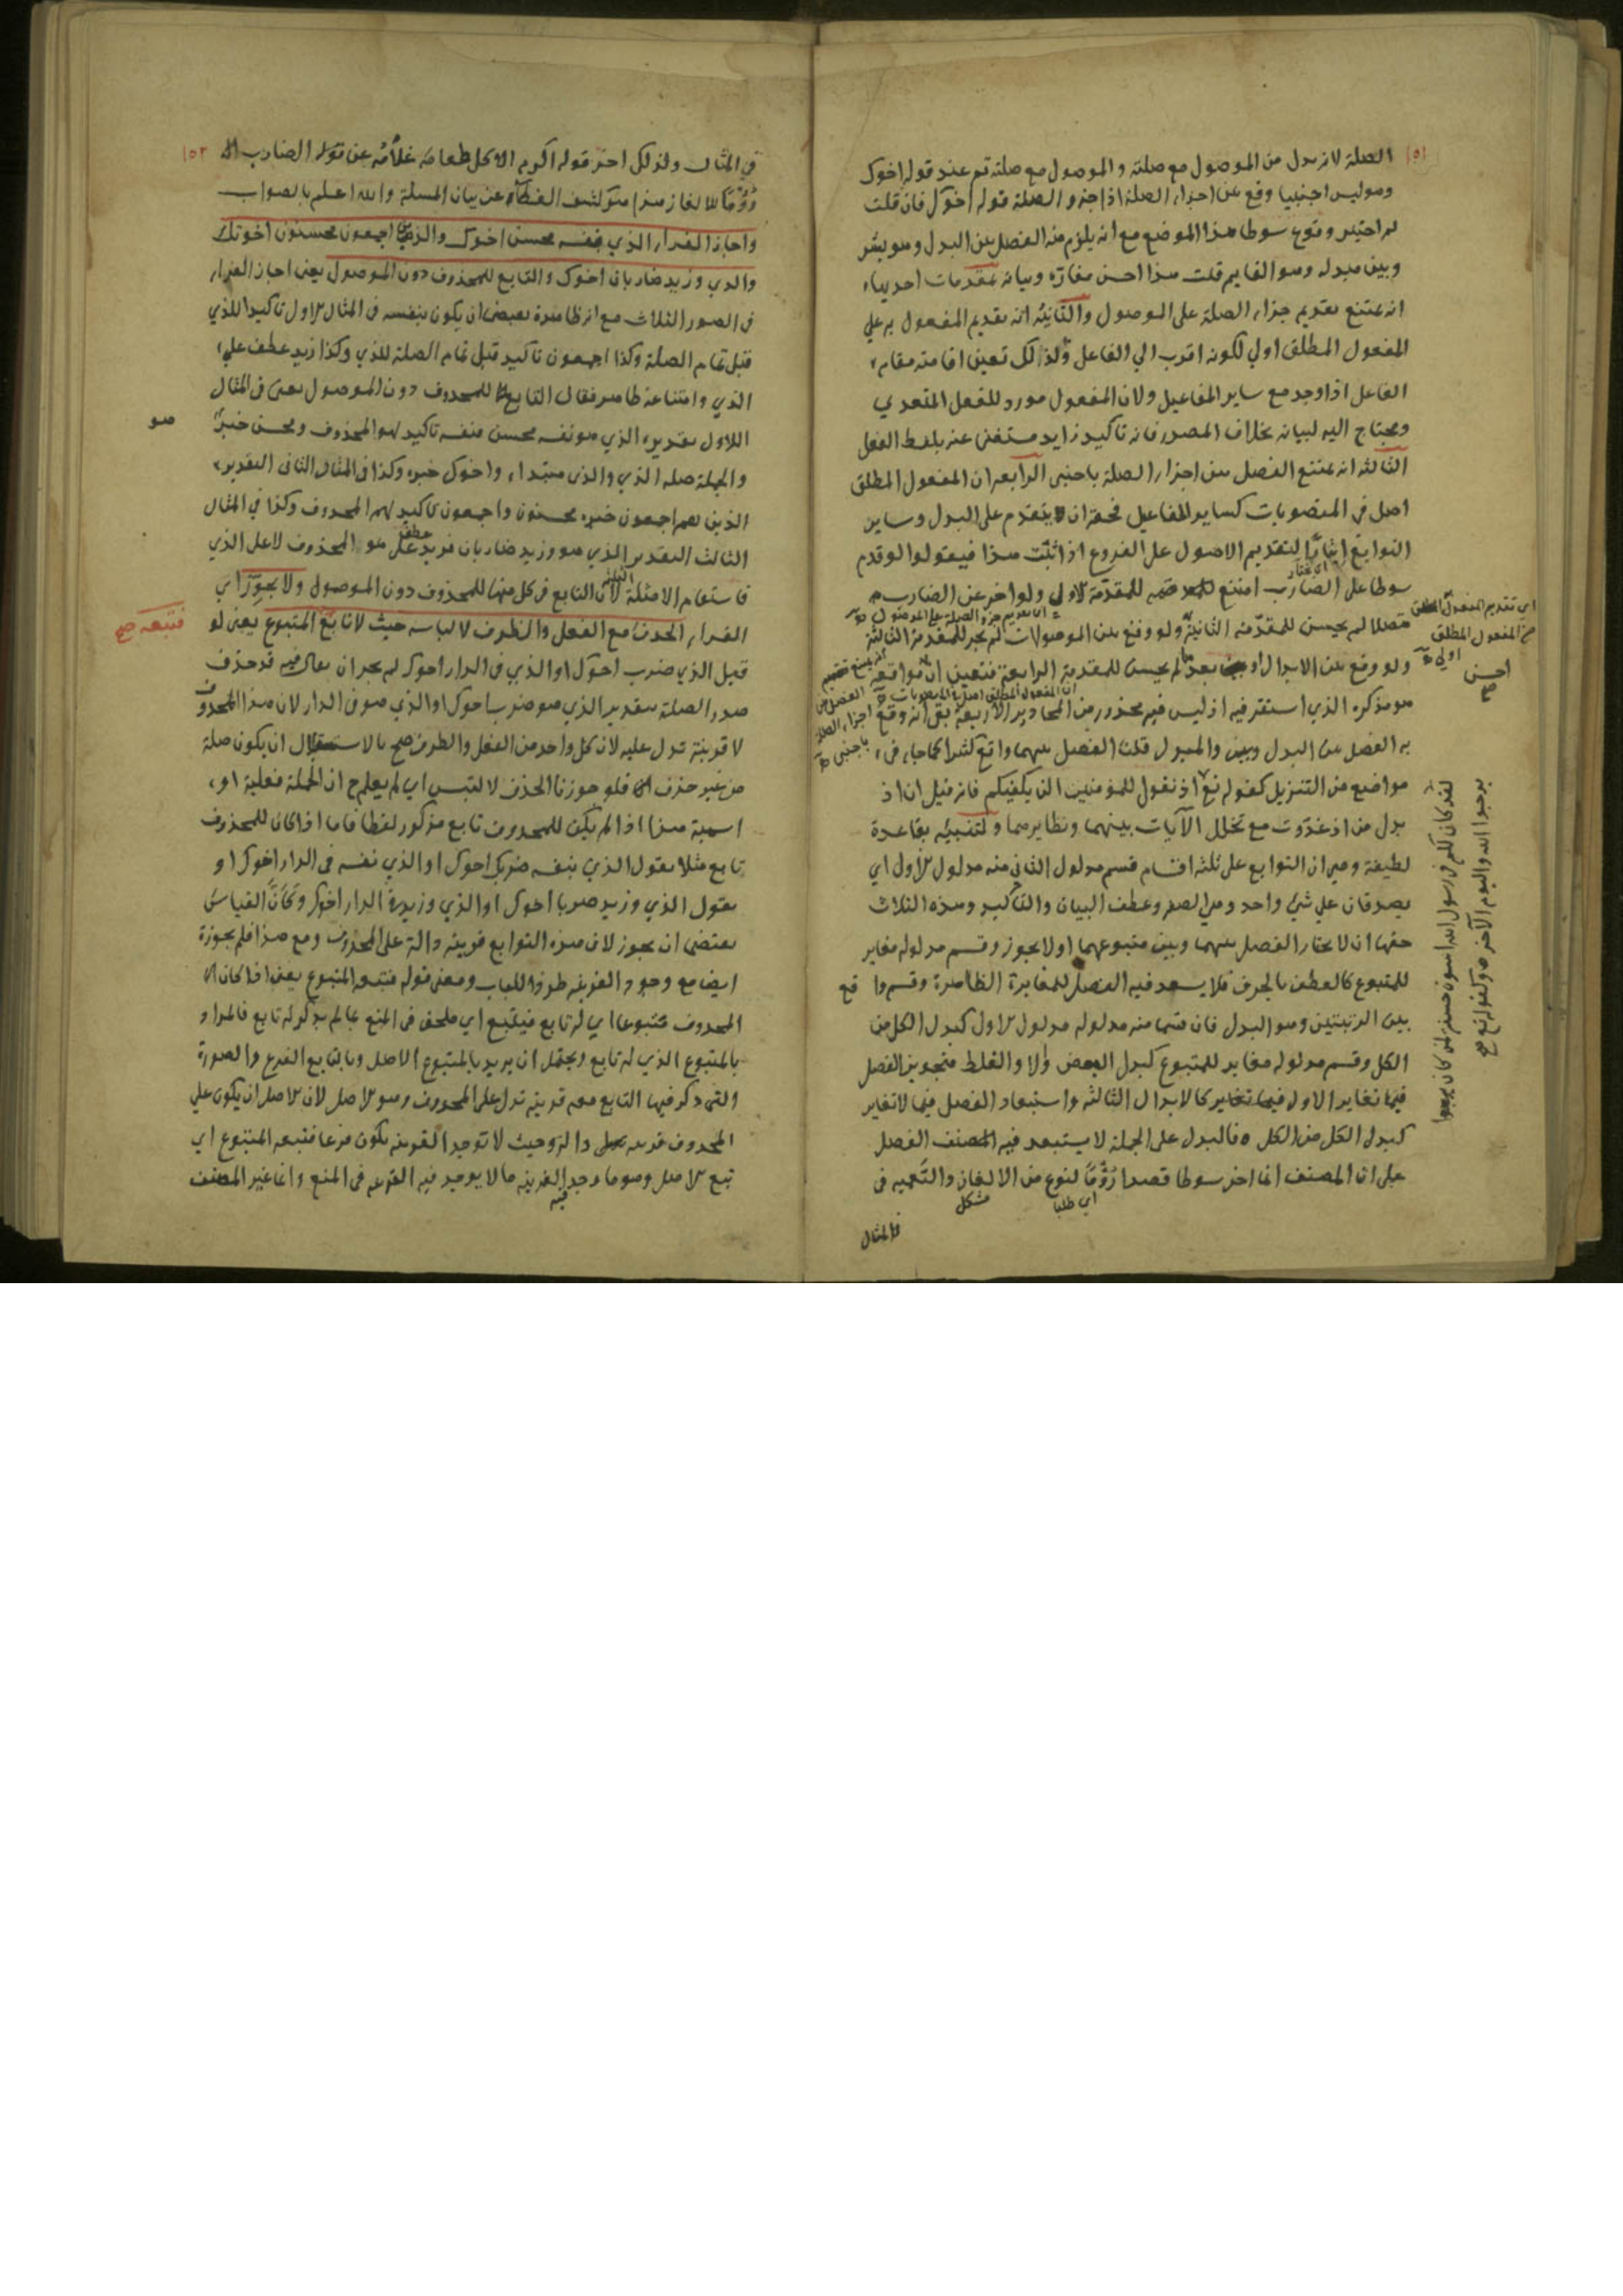 ١٥١
الصلة لانه بدل من الموصول مع صلته والموصول مع صلته تم عند قوله اخوك
وهو ليس اجنبيا وقع بين اجزاء الصلة اذ اجزو الصلة قوله اخوك فان قلت
لم اختير وقوع سوطا هذا الموضع مع انه يلزم منه الفصل بين البدل وهو بشر
وبين مبدله وهو القايم قلت هذا احسن مقاره وبيانه بمقدمات احديها
انه يمتنع تقديم جزاء الصلة على الموصول والثانية انه تقديم المفعول به علي
المفعول المطلق اولي لكونه اقرب الي الفاعل ولذلك تعين اقامته مقام
الفاعل اذا وجد مع ساير المفاعيل ولان المفعول مورد للفعل المتعدي
ومحتاج اليه لبيانه بخلاف المصدر فانه تاكيد زايد مستغنى عنه بلفظ الفعل
الثالثة انه يمتنع الفصل بين اجزاء الصلة باجنبي الرابعه ان المفعول المطلق
اصل في المنصوبات كساير المفاعيل فحقه ان يتقدم على البدل وساير
التوابع ايثارا لتقديم الاصول على الفروع اذا ثبت هذا فيقول لو قدم
سوطا على الضارب امتنع للمقدمة الاولى ولو اخر عن الضارب
متصلا لم يحسن للمقدمة الثانية ولو وقع بين الموصولات لم يجز للمقدمة الثالثة
ولو وقع بين الابدال او بعدها لم يحسن للمقدمة الرابعة فتعين ان مواقعه
هو مذكره الذي استقر فيه اذ ليس فيه محذور من المحاذير الاربعة بقى انه وقع
به الفصل بين البدل وبين والمبدل قلنا الفصل بينهما واقع كثيرا كما جاء في
مواضع من التنزيل كقوله تع اذ تقول للمؤمنين الن يكفيكم فانه قيل ان اذ
بدل من اذ غدوت مع تخلل الآيات بينهما ونظايرهما ولتنبيه بقاعدة
لطيفة وهي ان التوابع على ثلثة اقسام قسم مدلول الثاني منه مدلول الاول اي
يصدقان علي شئ واحد وهي الصفة وعطف البيان والتاكيد وهذه الثلاث
حقها ان لا يختار الفصل بينهما وبين متبوعهما او لا يجوز وقسم مدلوله مغاير
للمتبوع كالعطف بالحرف فلا يبعد فيه الفصل للمغايرة الظاهرة وقسم واقع
بين الرتبتين وهو البدل فان قسما منه مدلوله مدلول الاول كبدل الكل من
الكل وقسم مدلوله مغاير للمتبوع كبدل البعض ولا والغلط فتجويز الفصل
فيما تغاير الاول كالابدال الثالثه واستبعاد الفصل فيما لا تغاير
كبدل الكل من الكل ه فالبدل على الجملة لا يستبعد فيه الفصل
على ان المصنف انما اخر سوطا قصدا روما لنوع من الالغاز والتعميه في
اي طلبا
مشكل
في المثال
اي تقديم المفعول المطلق
من المفعول المطلق
اولي
احسن
صح
لقد كان لكم في رسول الله اسوة حسنة لمن كان يرجوا
يرجوا الله واليوم الآخر ه وكقوله تع
١٥٢
في المثال ولذلك اخر قوله اكرم الاكل طعامه غلامه عن قوله الضارب
روما للالغاز هذا هو كشف الغطاء عن بيان المسلة والله اعلم بالصواب
واجاز الفراء الذي نفسه محسن اخوك والذين اجمعون محسنون اخوتك
والذي وزيد ضاربان اخوك والتابع للمحذوف دون الموصول يعنى اجاز الفراء
في الصور الثلاث مع ان ظاهره يقتضى ان يكون بنفسه في المثال الاول تاكيدا للذي
قبل تمام الصلة وكذا اجمعون تاكيد قبل تمام الصلة للذي وكذا زيد عطف علي
الذي وامتناعه ظاهر فقال التابع للمحذوف دون الموصول يعنى في المثال
الاول بتقديره الذي هو نفسه محسن فنفسه تاكيد لهو المحذوف ومحسن خبر
هو
والجملة صلة الذي والذي مبتداء واخوك خبره وكذا في المثال الثاني التقدير
الذين هم اجمعون خبره محسنون واجمعون تاكيد لهم المحذوف وكذا في المثال
الثالث التقدير الذي هو وزيد ضاربان فزيد عطف على هو المحذوف لا على الذي
فاستقام الامثلة لان التابع في كل منها للمحذوف دون الموصول ولا يجوز اي
الفراء الحذف مع الفعل والظرف لالباسه حيث لا تابع المتبوع يعنى لو
فتبعه صح
قيل الذي ضرب اخوك او الذي في الدار اخوك لم يجز ان يقال فيه قد حذف
صدر الصلة بتقدير الذي هو ضرب اخوك او الذي هو في الدار لان هذا المحذوف
لا قرينة تدل عليه لان كل واحد من الفعل والظرف صح بالاستقلال ان يكون صلة
من غير حذف فلو جوزنا الحذف لالتبس اي لم يعلم ح ان الجملة فعلية او
اسمية هذا اذا لم يكن للمحذوف تابع مذكور لفظا فاما اذا كان للمحذوف
تابع مثلا يقول الذي بنفسه ضربك اخوك او الذي نفسه في الدار اخوك او
يقول الذي وزيد ضربا اخوك او الذي وزيد في الدار اخوك وكان القياس
يقتضى ان يجوز لان هذه التوابع قرينة دالة على المحذوف ومع هذا فلم يجوزه
ايضا مع وجود القرينة طردا للباب ومعنى قوله فتبعه المتبوع يعنى اذا كان
المحذوف متبوعا اي له تابع فيتبع اي ملحق في المنع بما لم يذكر له تابع فالمراد
بالمتبوع الذي له تابع ويحتمل ان يريد بالمتبوع الاصل وبالتابع الفرع والصورة
التي ذكر فيها التابع معه قرينة تدل على المحذوف وهو الاصل لان الاصل ان يكون علي
المحذوف قرينه دالة وحيث لا توجد القرينه يكون فرعا فتبعه المتبوع اي
تبع الاصل وهو ما وجد فيه القرينه ما لا يوجد فيه القرينه في المنع وانما غير المصنف